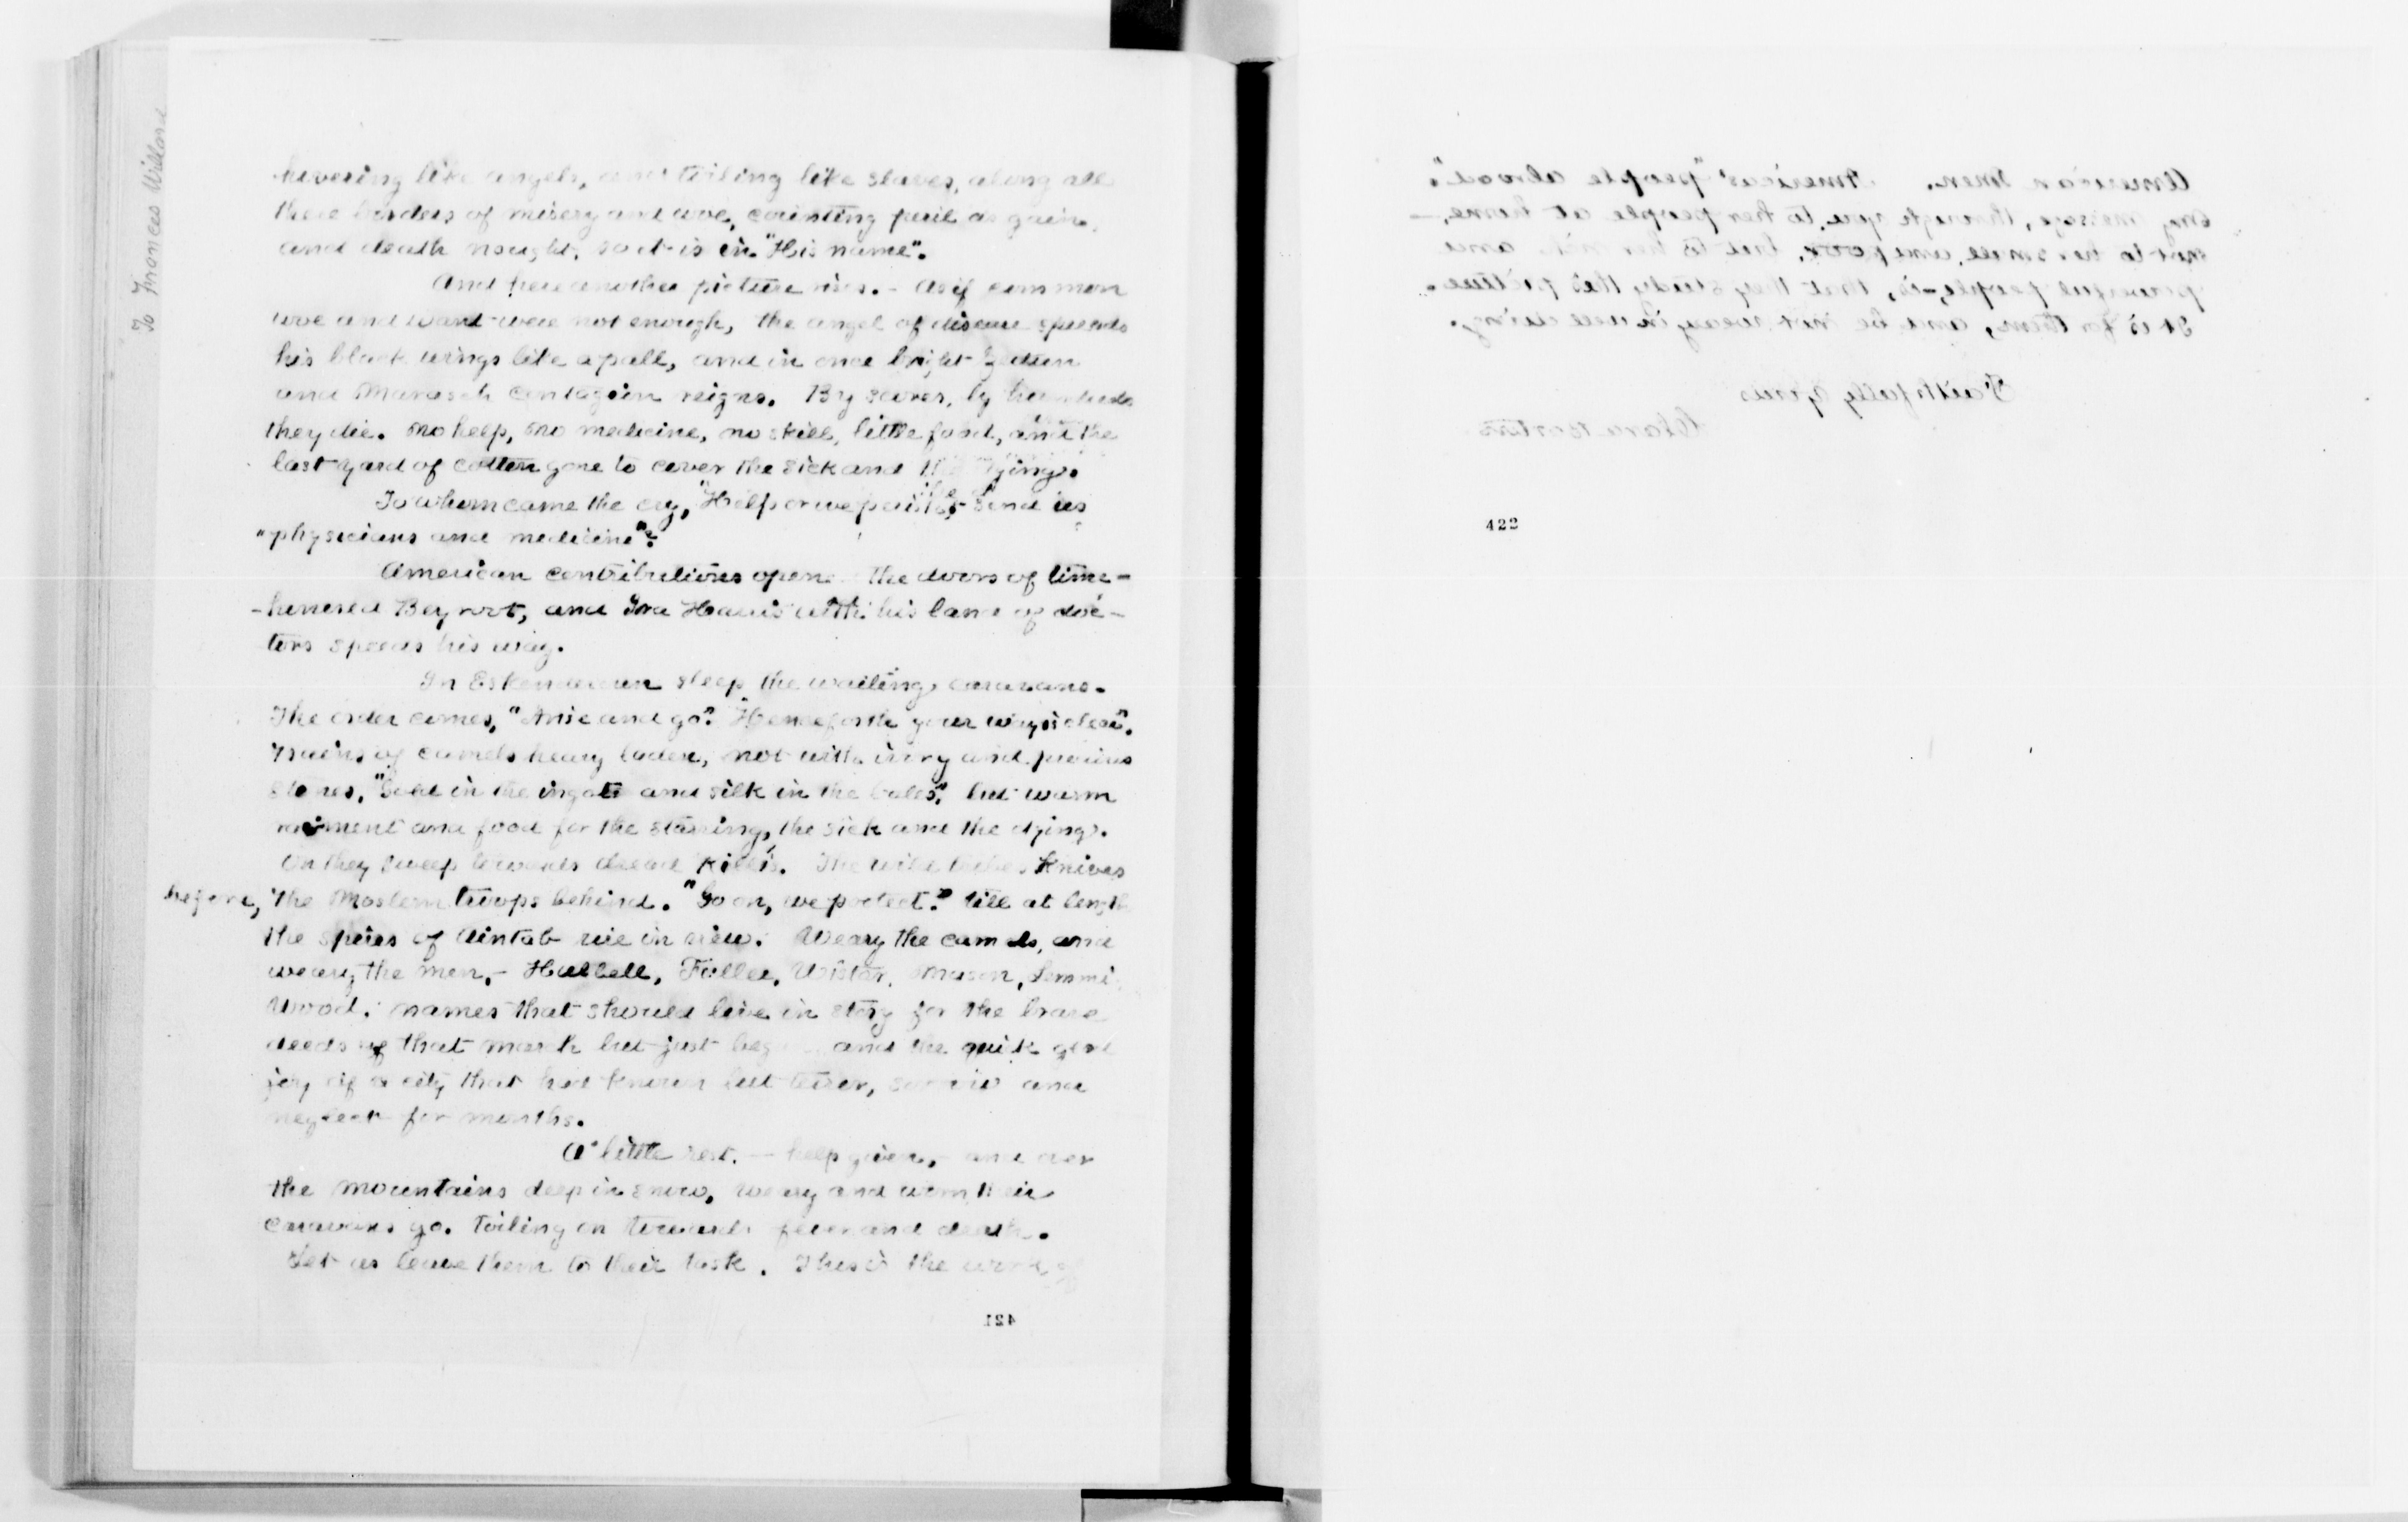 To Frances Willard
hovering like angels, and toiling like slaves, along all
these borders of misery and woe, counting peril as gain,
and death nought, so it is in "His name".
And here another picture rises. - As if common
woe and want were not enough, the angel of disease spreads
his black wings like a pall, and in once bright Zeitun
and Marasch contagion reigns. By scores, by hundreds
they die. No help, no medicine, no skill, little food, and the
last yard of cotton gone to cover the sick and the dying.
To whom came the cry, "Help or we perish, - Send us
"physicians and medicine"?
American contributions open the doors of time-
-honored Beyroot, and Ira Harris with his band of doc-
tors speeds his way.
In Eskenderoun sleep the waiting caravans.
The order comes, "Arise and go". "Henceforth your way is clear".
Trains of camels heavy laden, not with ivory and precious
stones, "Gold in the ingots and silk in the bales", but warm
raiment and food for the starving, the sick and the dying.
On they sweep towards dread "Killis". The wild tribes knives
before, the Moslem troops behind. "Go on, we protect." till at length
the spires of Aintab rise in view. Weary the camels, and
weary the men, - Hubbell, Fuller, Wistar, Mason,
Wood. names that should live in story for the brave
deeds of that march but just and the quick glad
joy of a city that had known but terror, sorrow and
neglect for months.
A little rest. - help given, - and over
the mountains deep in snow, weary and worn their
caravans go. toiling on towards fever and death.
Let us leave them to their task. This is the work of
421
American men. America's "people abroad".
my message, through you, to her people at home, -
not to her small and poor, but to her rich and
powerful people, - is, that they study this picture.
It is for them, and be not weary in well doing.
Faithfully Yours
Clara Barton
422